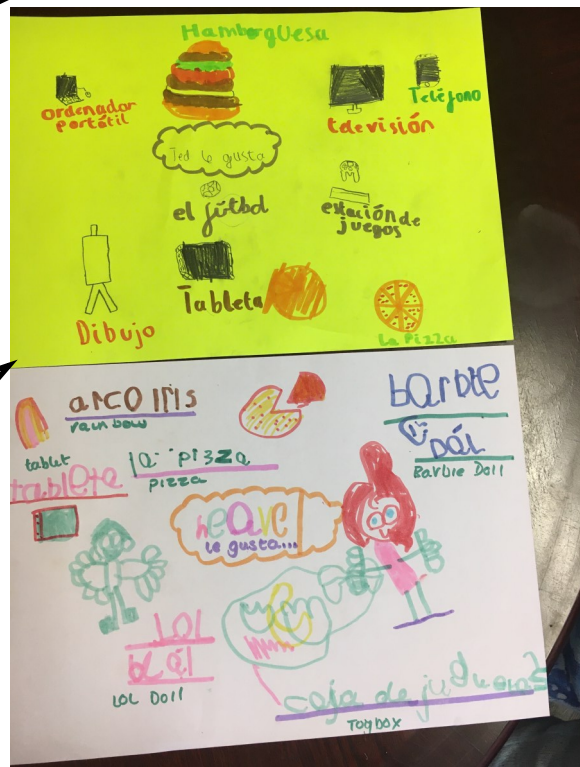 HamborgUesa
ordenador
portátil
televisión
Teléfono
Ted le gusta
el fútbol
estación de
juegos
Tableta
Dibujo
La Pizza
arco iris
rainbow
barbie
Dál
Barbie Doll
tablet
tableta
la pi3za
pizza
le gusta...
LOL
LOL Doll
Toybox